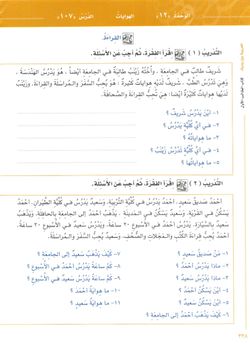 الوحدة «١٢»
الهوايات
الدرس «١٠٧»
القراءة
التدريب ( ١ ) اقرأ الفقرة، ثم أجب عن الأسئلة.
شريف طالب في الجامعة ، وأخته زينب طالبة في الجامعة أيضا ، هو يدرس الهندسة ،
وهي تدرس الطب ، شريف لديه هوايات كثيرة : هو يحب السفر والمراسلة والقراءة، وزينب
لديها هوايات كثيرة أيضا: هي تحب القراءة والصحافة.
١- أين يدرس شريف ؟
٢- في أي كلية يدرس ؟
٣- ما هواياته ؟
٤- في أي كلية تدرس زينب ؟
٥- ما هواياتها ؟
التدريب ( ٢ ) اقرأ الفقرة، ثم أجب عن الأسئلة.
أحمد صديق سعيد، أحمد يدرس في كلية التربية، وسعيد يدرس في كلية الطيران، أحمد
يسكن في القرية، وسعيد يسكن في المدينة ، يذهب أحمد إلى الجامعة بالحافلة، ويذهب
سعيد بالسيارة، يدرس أحمد في الأسبوع ٢٠ ساعة، ويدرس سعيد في الأسبوع ٣٠ ساعة،
أحمد يحب قراءة الكتب والمجلات والصحف، وسعيد يحب السفر والمراسلة.
١- من صديق سعيد ؟
٢- ماذا يدرس أحمد ؟
٣- ماذا يدرس سعيد ؟
٤- أين يسكن أحمد ؟
٥- أين يسكن سعيد ؟
٦- كيف يذهب أحمد إلى الجامعة ؟
٧- كيف يذهب سعيد إلى الجامعة ؟
٨- كم ساعة يدرس أحمد في الأسبوع ؟
٩- كم ساعة يدرس سعيد في الأسبوع ؟
١٠- ما هواية أحمد ؟
١١- ما هواية سعيد ؟